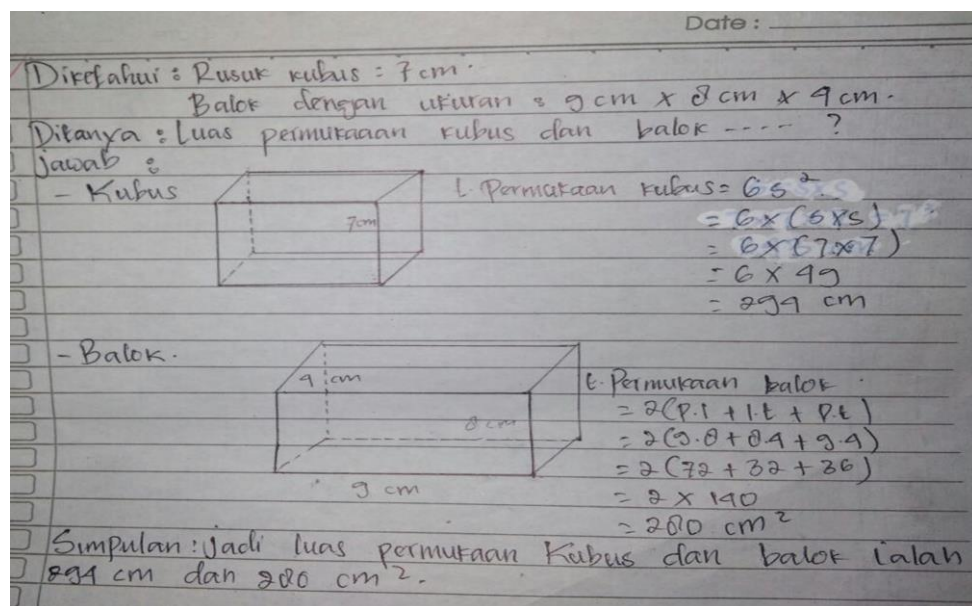 Date :
Diketahui : Rusuk kubus = 7 cm.
Balok dengan ukuran : 9 cm x 8 cm x 4 cm.
Ditanya : Luas permukaan kubus dan balok ---- ?
Jawab :
- Kubus
7cm
L. Permukaan kubus = 6s²
= 6 x (s x s)
= 6 x (7 x 7)
= 6 x 49
= 294 cm
- Balok.
4 cm
8 cm
9 cm
L. Permukaan balok.
= 2(p.l + l.t + p.t)
= 2(9.8 + 8.4 + 9.4)
= 2(72 + 32 + 36)
= 2 x 140
= 280 cm²
Simpulan : Jadi luas permukaan Kubus dan balok ialah
294 cm dan 280 cm².